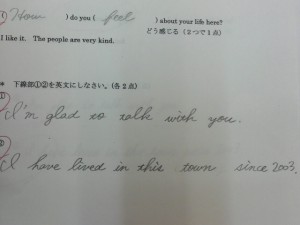 ( How ) do you ( feel ) about your life here?
どう感じる (2つで1点)
I like it. The people are very kind.
* 下線部①②を英文にしなさい。(各2点)
①
I'm glad to talk with you.
②
I have lived in this town since 2003.